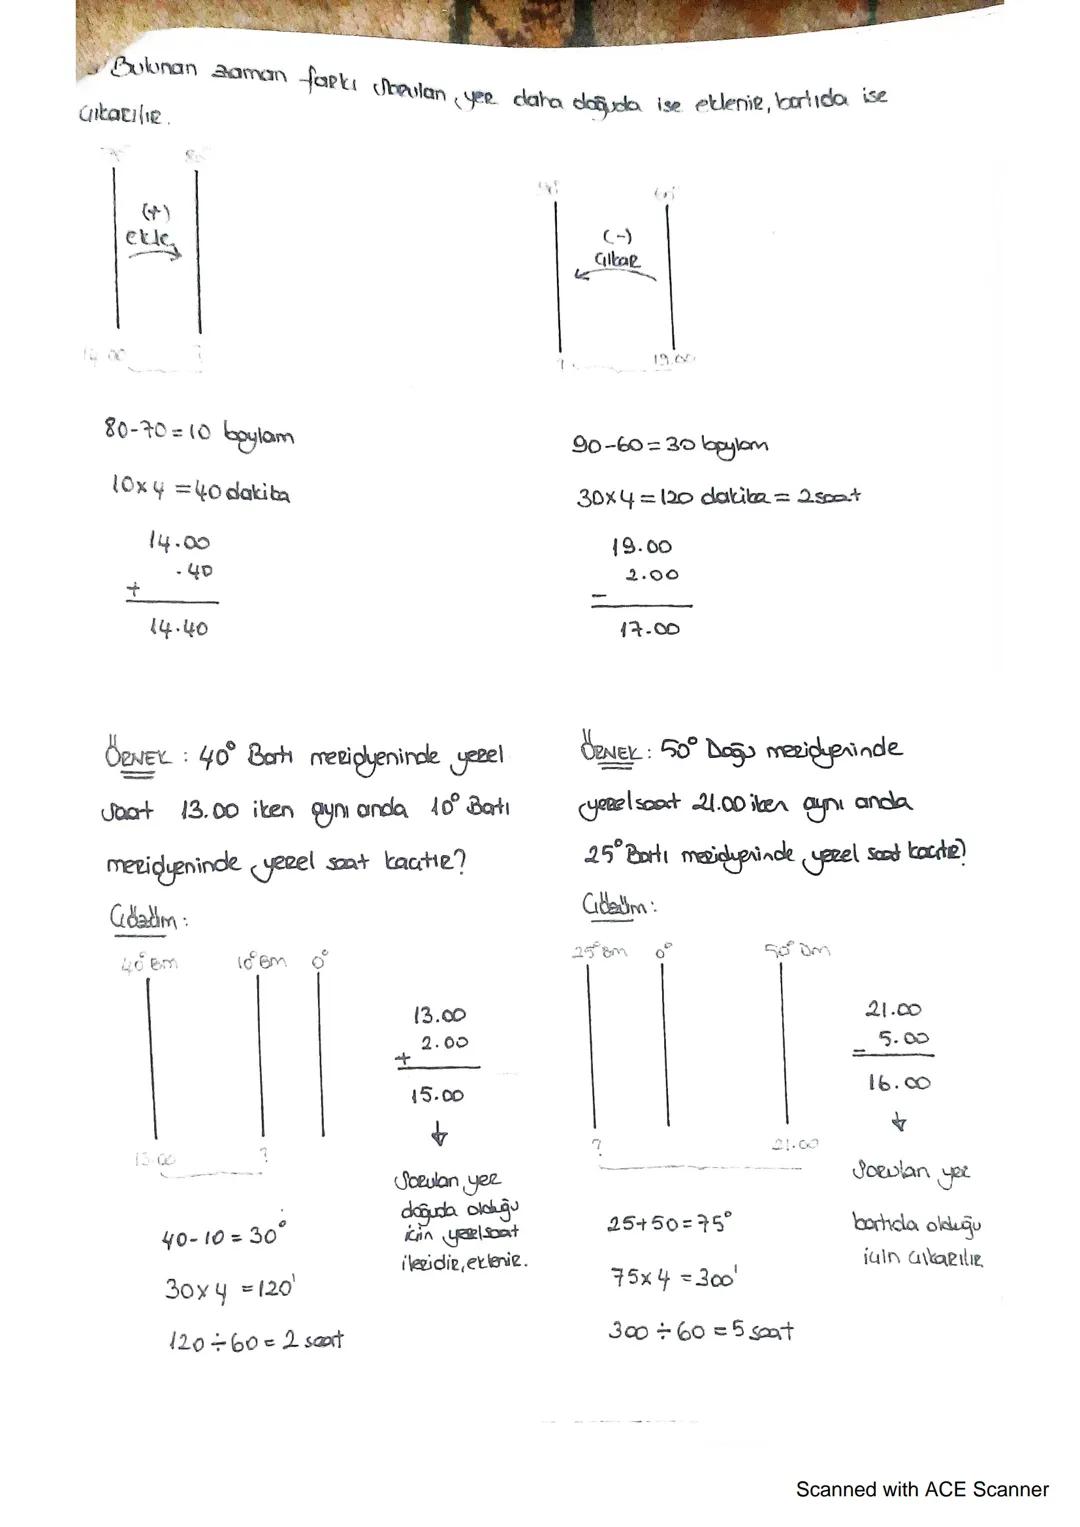 Bulunan zaman farkı sorulan yer daha doğuda ise eklenir, batıda ise
çıkarılır.
80°
(+)
ekle
14.00 ?
(-)
çıkar
? 19.00
80-70=10 boylam
10x4=40 dakika
14.00
.40
+
14.40
90-60=30 boylam
30x4=120 dakika=2 saat
19.00
2.00
-
17.00
ÖRNEK : 40° Batı meridyeninde yerel
saat 13.00 iken aynı anda 10° Batı
meridyeninde yerel saat kaçtır?
Çözüm:
40° Bm 10° Bm 0°
13.00 ?
13.00
2.00
+
15.00
Sorulan yer
doğuda olduğu
için yerel saat
ileridir, eklenir.
40-10=30°
30x4=120'
120÷60=2 saat
ÖRNEK: 50° Doğu meridyeninde
yerel saat 21.00 iken aynı anda
25° Batı meridyeninde yerel saat kaçtır?
Çözüm:
25° Bm 0° 50° Dm
? 21.00
21.00
5.00
-
16.00
Sorulan yer
batıda olduğu
için çıkarılır
25+50=75°
75x4=300'
300÷60=5 saat
Scanned with ACE Scanner